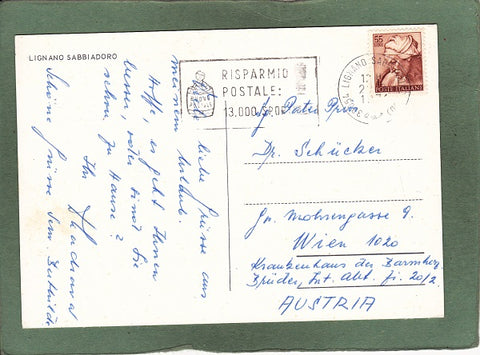 LIGNANO SABBIADORO
liebe Grüsse aus
meinem Urlaub.
Hoffe, es geht Ihnen
besser, oder sind Sie
schon zu Hause?
Ihr
Schöne Grüsse
RISPARMIO
POSTALE:
13.000
55
POSTE ITALIANE
LIGNANO
Dr. Schücker
Gr. Mohsengasse 9.
Wien 1020
Krankenhaus der Barmherz.
Brüder, Int. Abt. Zi. 20/2
AUSTRIA